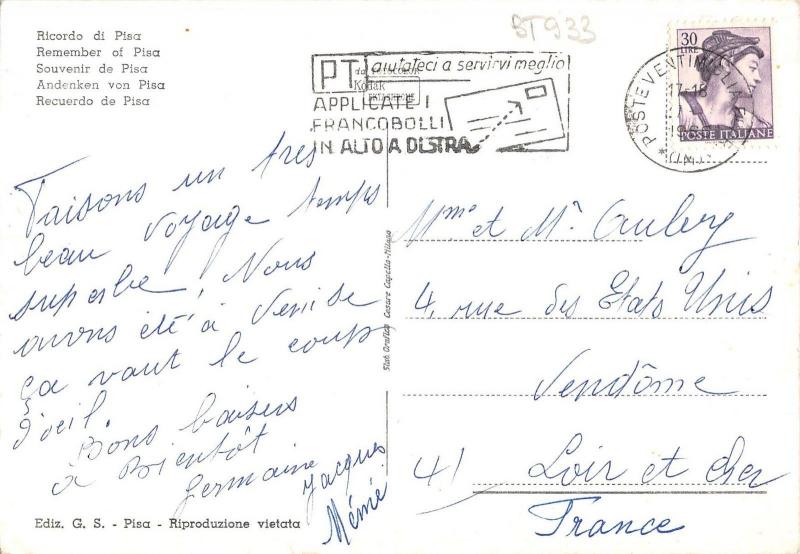 Ricordo di Pisa
Remember of Pisa
Souvenir de Pisa
Andenken von Pisa
Recuerdo de Pisa
BT933
PT aiutateci a servirvi meglio
Kodak
APPLICATE I
FRANCOBOLLI
IN ALTO A DESTRA
POSTE VENTIMIGLIA
17-18
30
LIRE
POSTE ITALIANE
Faisons un tres
beau voyage temps
superbe, Nous
avons été à Venise
ça vaut le coup
d'oeil.
Bons baisers
à Bientôt
Germaine Jacques
Mémé
Mme et Mr Aubry
4, rue des Etats Unis
Vendôme
41 Loir et cher
France
Stab. Grafico Cesare Capello - Milano
Ediz. G. S. - Pisa - Riproduzione vietata